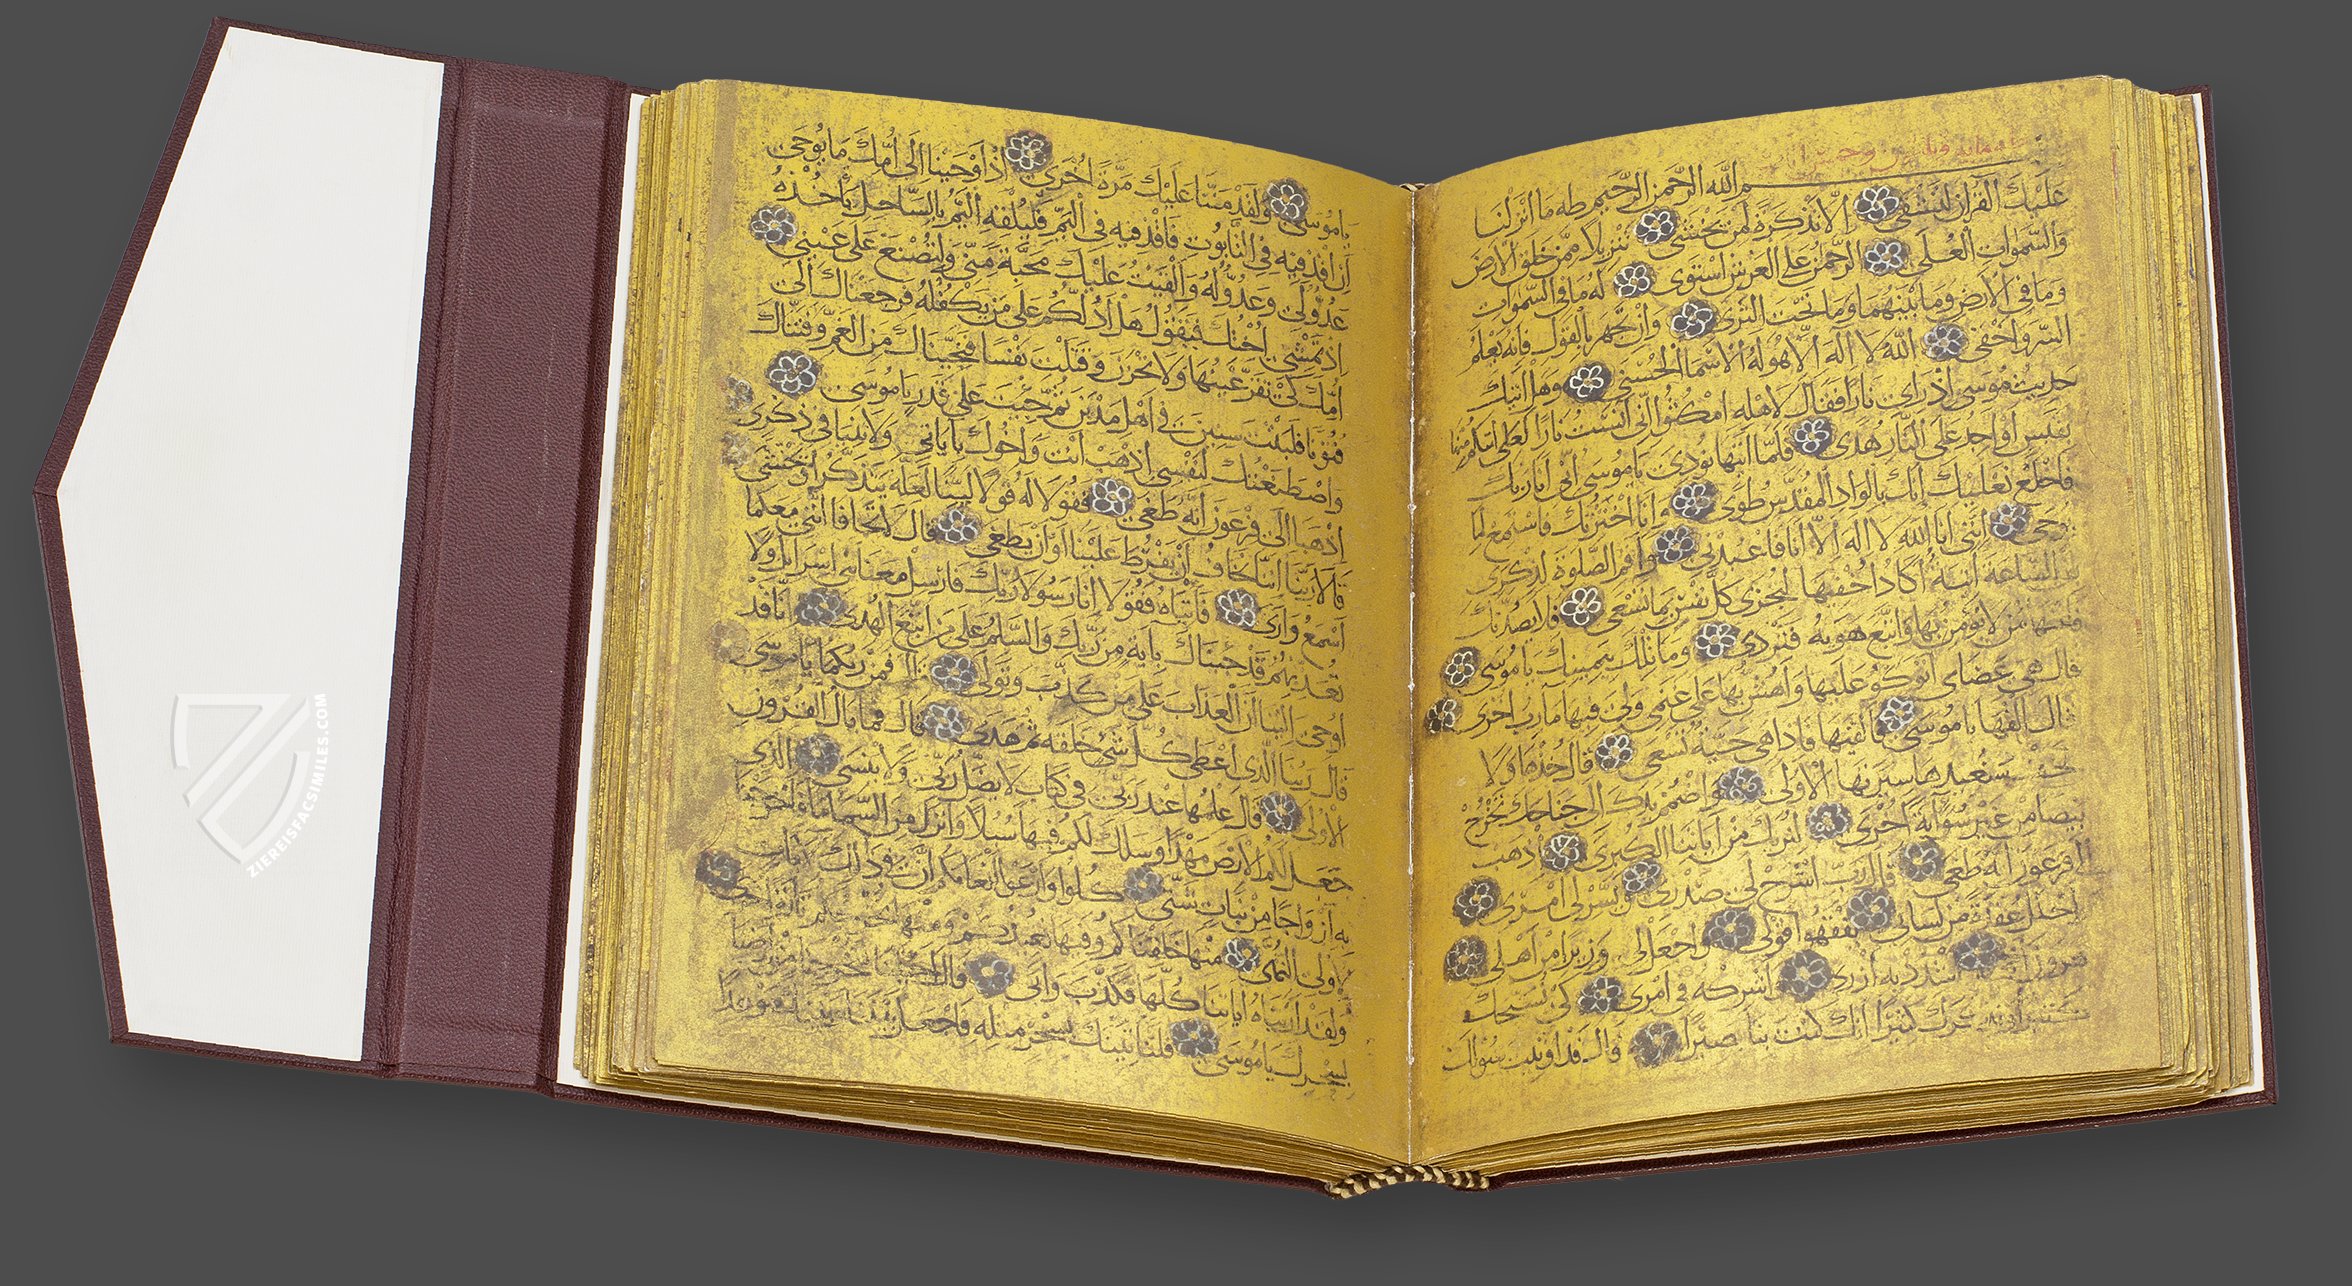 بسم الله الرحمن الرحيم طه ما انزلنا
عليك القرآن لتشقى الا تذكرة لمن يخشى تنزيلا ممن خلق الارض
والسموات العلى الرحمن على العرش استوى له ما فى السموات
وما فى الارض وما بينهما وما تحت الثرى وان تجهر بالقول فانه يعلم
السر واخفى الله لا اله الا هو له الاسما الحسنى وهل اتيك
حديث موسى اذ راى نارا فقال لاهله امكثوا انى انست نارا لعلى اتيكم منها
بقبس او اجد على النار هدى فلما اتيها نودى يا موسى انى انا ربك
فاخلع نعليك انك بالواد المقدس طوى وانا اخترتك فاستمع لما
يوحى اننى انا الله لا اله الا انا فاعبدنى واقم الصلوة لذكرى
ان الساعة اتية اكاد اخفيها لتجزى كل نفس بما تسعى فلا يصدنك
عنها من لا يؤمن بها واتبع هويه فتردى وما تلك بيمينك يا موسى
قال هى عصاى اتوكؤ عليها واهش بها على غنمى ولى فيها مارب اخرى
قال القها يا موسى فالقيها فاذا هى حية تسعى قال خذها ولا
تخف سنعيدها سيرتها الاولى واضمم يدك الى جناحك تخرج
بيضا من غير سوء اية اخرى لنريك من اياتنا الكبرى اذهب
الى فرعون انه طغى قال رب اشرح لى صدرى ويسر لى امرى
واحلل عقدة من لسانى يفقهوا قولى واجعل لى وزيرا من اهلى
هرون اخى اشدد به ازرى واشركه فى امرى كى نسبحك
كثيرا ونذكرك كثيرا انك كنت بنا بصيرا قال قد اوتيت سولك
يا موسى ولقد مننا عليك مرة اخرى اذ اوحينا الى امك ما يوحى
ان اقذفيه فى التابوت فاقذفيه فى اليم فليلقه اليم بالساحل ياخذه
عدو لى وعدو له والقيت عليك محبة منى ولتصنع على عينى
اذ تمشى اختك فتقول هل ادلكم على من يكفله فرجعناك الى
امك كى تقر عينها ولا تحزن وقتلت نفسا فنجيناك من الغم وفتناك
فتونا فلبثت سنين فى اهل مدين ثم جيت على قدر يا موسى
واصطنعتك لنفسى اذهب انت واخوك باياتى ولا تنيا فى ذكرى
اذهبا الى فرعون انه طغى فقولا له قولا لينا لعله يتذكر او يخشى
قالا ربنا اننا نخاف ان يفرط علينا او ان يطغى قال لا تخافا اننى معكما
اسمع وارى فاتياه فقولا انا رسولا ربك فارسل معنا بنى اسرايل ولا
تعذبهم قد جيناك باية من ربك والسلم على من اتبع الهدى انا قد
اوحى الينا ان العذاب على من كذب وتولى قال فمن ربكما يا موسى
قال ربنا الذى اعطى كل شى خلقه ثم هدى قال فما بال القرون
الاولى قال علمها عند ربى فى كتاب لا يضل ربى ولا ينسى الذى
جعل لكم الارض مهدا وسلك لكم فيها سبلا وانزل من السما ما فاخرجنا
به ازواجا من نبات شتى كلوا وارعوا انعامكم ان فى ذلك لايات
لاولى النهى منها خلقناكم وفيها نعيدكم ومنها نخرجكم تارة اخرى
ولقد اريناه اياتنا كلها فكذب وابى قال اجيتنا لتخرجنا من ارضنا
بسحرك يا موسى فلناتينك بسحر مثله فاجعل بيننا وبينك موعدا
ZIEREISFACSIMILES.COM